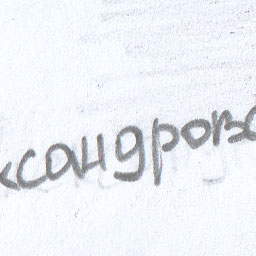 ксандрова